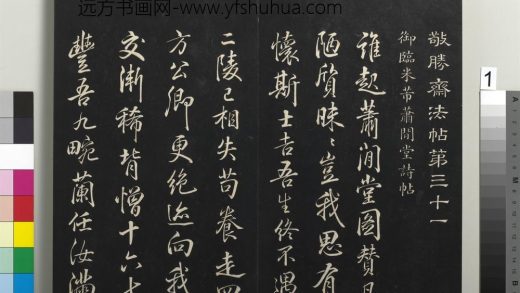 远方书画网-www.yfshuhua.com
敬勝齋法帖第三十一
御臨米芾蕭閒堂詩帖
誰起蕭閒堂圖贊
陋質昧〻豈我思有
懷斯士吉吾生終不遇
二陵已相失苟養走四
方公卿更絶迹向我
交漸稀背憎十六
豐吾九畹蘭任汝滿
1